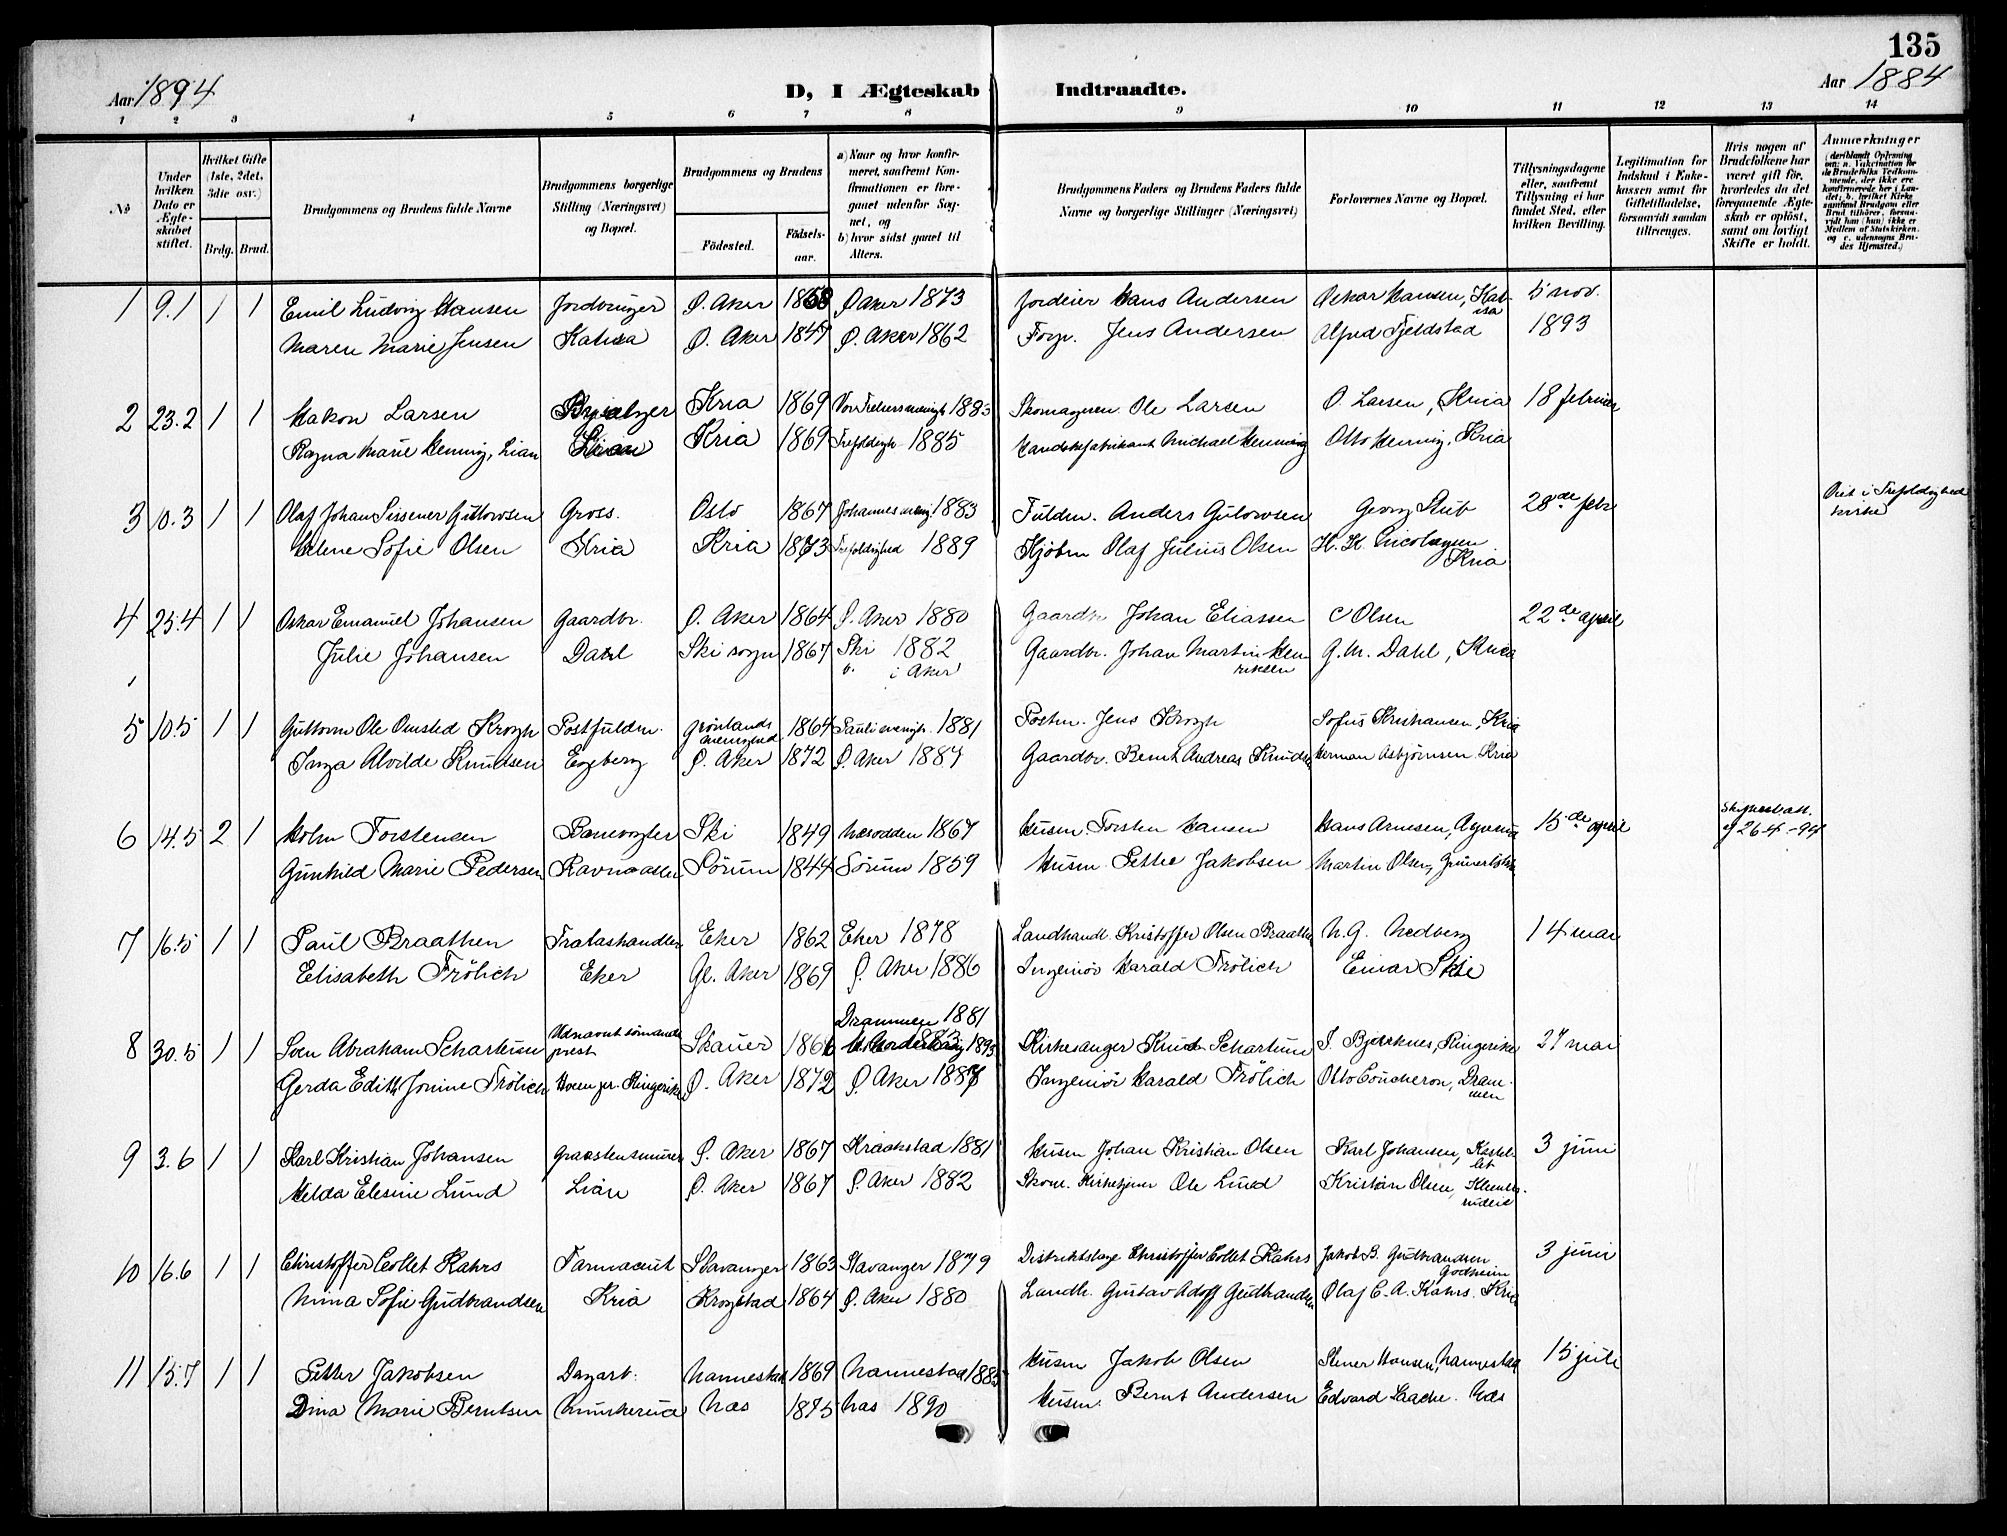 135
Aar 1894
D, I Ægteskab Indtraadte.
Aar 1884
1 2 3 4 5 6 7 8 9 10 11 12 13 14
№
Under hvilken Dato er Ægteskabet stiftet.
Hvilket Gifte (1ste, 2det, 3die osv.)
Brdg. Brud.
Brudgommens og Brudens fulde Navne
Brudgommens borgerlige Stilling (Næringsvei) og Bopæl.
Brudgommens og Brudens
Födested.
Födselsaar.
a) Naar og hvor konfirmeret, saafremt Konfirmationen er foregaaet udenfor Sognet, og
b) hvor sidst gaaet til Alters.
Brudgommens Faders og Brudens Faders fulde Navne og borgerlige Stillinger (Næringsvei)
Forlovernes Navne og Bopæl.
Tillysningsdagene eller, saafremt Tillysning ei har fundet Sted, efter hvilken Bevilling.
Legitimation for Indskud i Enkekassen samt for Giftetilladelse, forsaavidt saadan tiltrænges.
Hvis nogen af Brudefolkene har været gift för, hvorledes da det foregaaende Ægteskab er oplöst, samt om lovligt Skifte er holdt.
Anmærkninger
1 9.1 1 1 Emil Ludvig Hansen Jordbruger Ø. Aker 1858 Ø Aker 1873 Jordeier Hans Andersen Oskar Hansen, Katisa 5 nov.
Maren Marie Jensen Katisa Ø. Aker 1847 Ø. Aker 1862 Forp. Jens Andersen Alfred Fjeldstad 1893
2 23.2 1 1 Hakon Larsen Kria 1869 Vor Frelsers menigh 1883 Skomageren Ole Larsen O. Larsen, Kria 18 februar
Ragna Marie Henning, Lian Lian Kria 1869 Trefoldigh 1885 Handskefabrikant Michael Henning Otto Henning, Kria
3 10.3 1 1 Olaf Johan Sissener Gulowsen Gross. Oslo 1867 Johannes menig. 1883 Fuldm. Anders Gulowsen Georg Stub 28de febr Viet i Trefoldighed kirke
Helene Sofie Olsen Kria Kria 1873 Trefoldighed 1889 Kjöbm Olaf Julius Olsen H. H. Nicolaysen Kria
4 25.4 1 1 Oskar Emanuel Johansen Gaardbr. Ø. Aker 1864 Ø. Aker 1880 Gaardbr Johan Eliassen C Olsen 22de april
Julie Johansen Dahl Ski sogn 1867 Ski 1882 Gaardbr. Johan Martin Henriksen G. M. Dahl, Kria
i Aker
5 10.5 1 1 Guttorm Ole Omsted Krogh Postfuldm. Grönlands menighed 1864 Pauli menigh. 1881 Postm. Jens Krogh Sofus Kristiansen, Kria
Inga Alvilde Knudsen Egeberg Ø. Aker 1872 Ø. Aker 1887 Gaardbr. Bernt Andreas Knudsen Herman Asbjörnsen Kria
6 14.5 2 1 Holm Torstensen Banevogter Ski 1849 Nesodden 1867 Husm. Torsten Hansen Hans Arnesen, 15de april 26-4-94
Gunhild Marie Pedersen Sörum 1844 Sörum 1859 Husm. Petter Jakobsen Martin Olsen, Grünerlökken
7 16.5 1 1 Paul Braathen Trælasthandler Eker 1862 Eker 1878 Landhandl. Kristoffer Olsen Braathen N. G. Nedberg 14 mai
Elisabeth Frölich Eker Gl. Aker 1869 Ø. Aker 1886 Ingeniör Harald Frölich Einar Skie
8 30.5 1 1 Sven Abraham Schartum Udnævnt sömandsprest Skauer 1866 Drammen 1881 1893 Kirkesanger Knud Schartum S. Bjerknes, Ringerike 27 mai
Gerda Edith Jonine Frölich Hoem pr. Ringerike Ø. Aker 1872 Ø. Aker 1887 Ingeniör Harald Frölich Otto Coucheron, Drammen
9 3.6 1 1 Karl Kristian Johansen Graastensmurer Ø. Aker 1867 Kraakstad 1881 Husm Johan Kristian Olsen Karl Johansen, Kastellet 3 juni
Milda Elesine Lund Lian Ø. Aker 1867 Ø. Aker 1882 Skom. Kirketjener Ole Lund Kristian Olsen, Klemetsrudeie
10 16.6 1 1 Christoffer Collet Kahrs Farmaceut Stavanger 1863 Stavanger 1879 Distriktslæge Christoffer Collet Kahrs Jakob B. Gudbrandsen Godheim 3 juni
Nina Sofie Gudbrandsen Kria Krogstad 1864 Ø. Aker 1880 Landh. Gustav Adolf Gudbrandsen Olaf C. A. Kahrs. Kria
11 15.7 1 1 Petter Jakobsen Dagarb. Nannestad 1869 Nannestad 1885 Husm Jakob Olsen Stener Hansen, Nannestad 15 juli
Dina Marie Berntsen Munkerud Næs 1875 Næs 1890 Husm. Bernt Andersen Edvard Næs